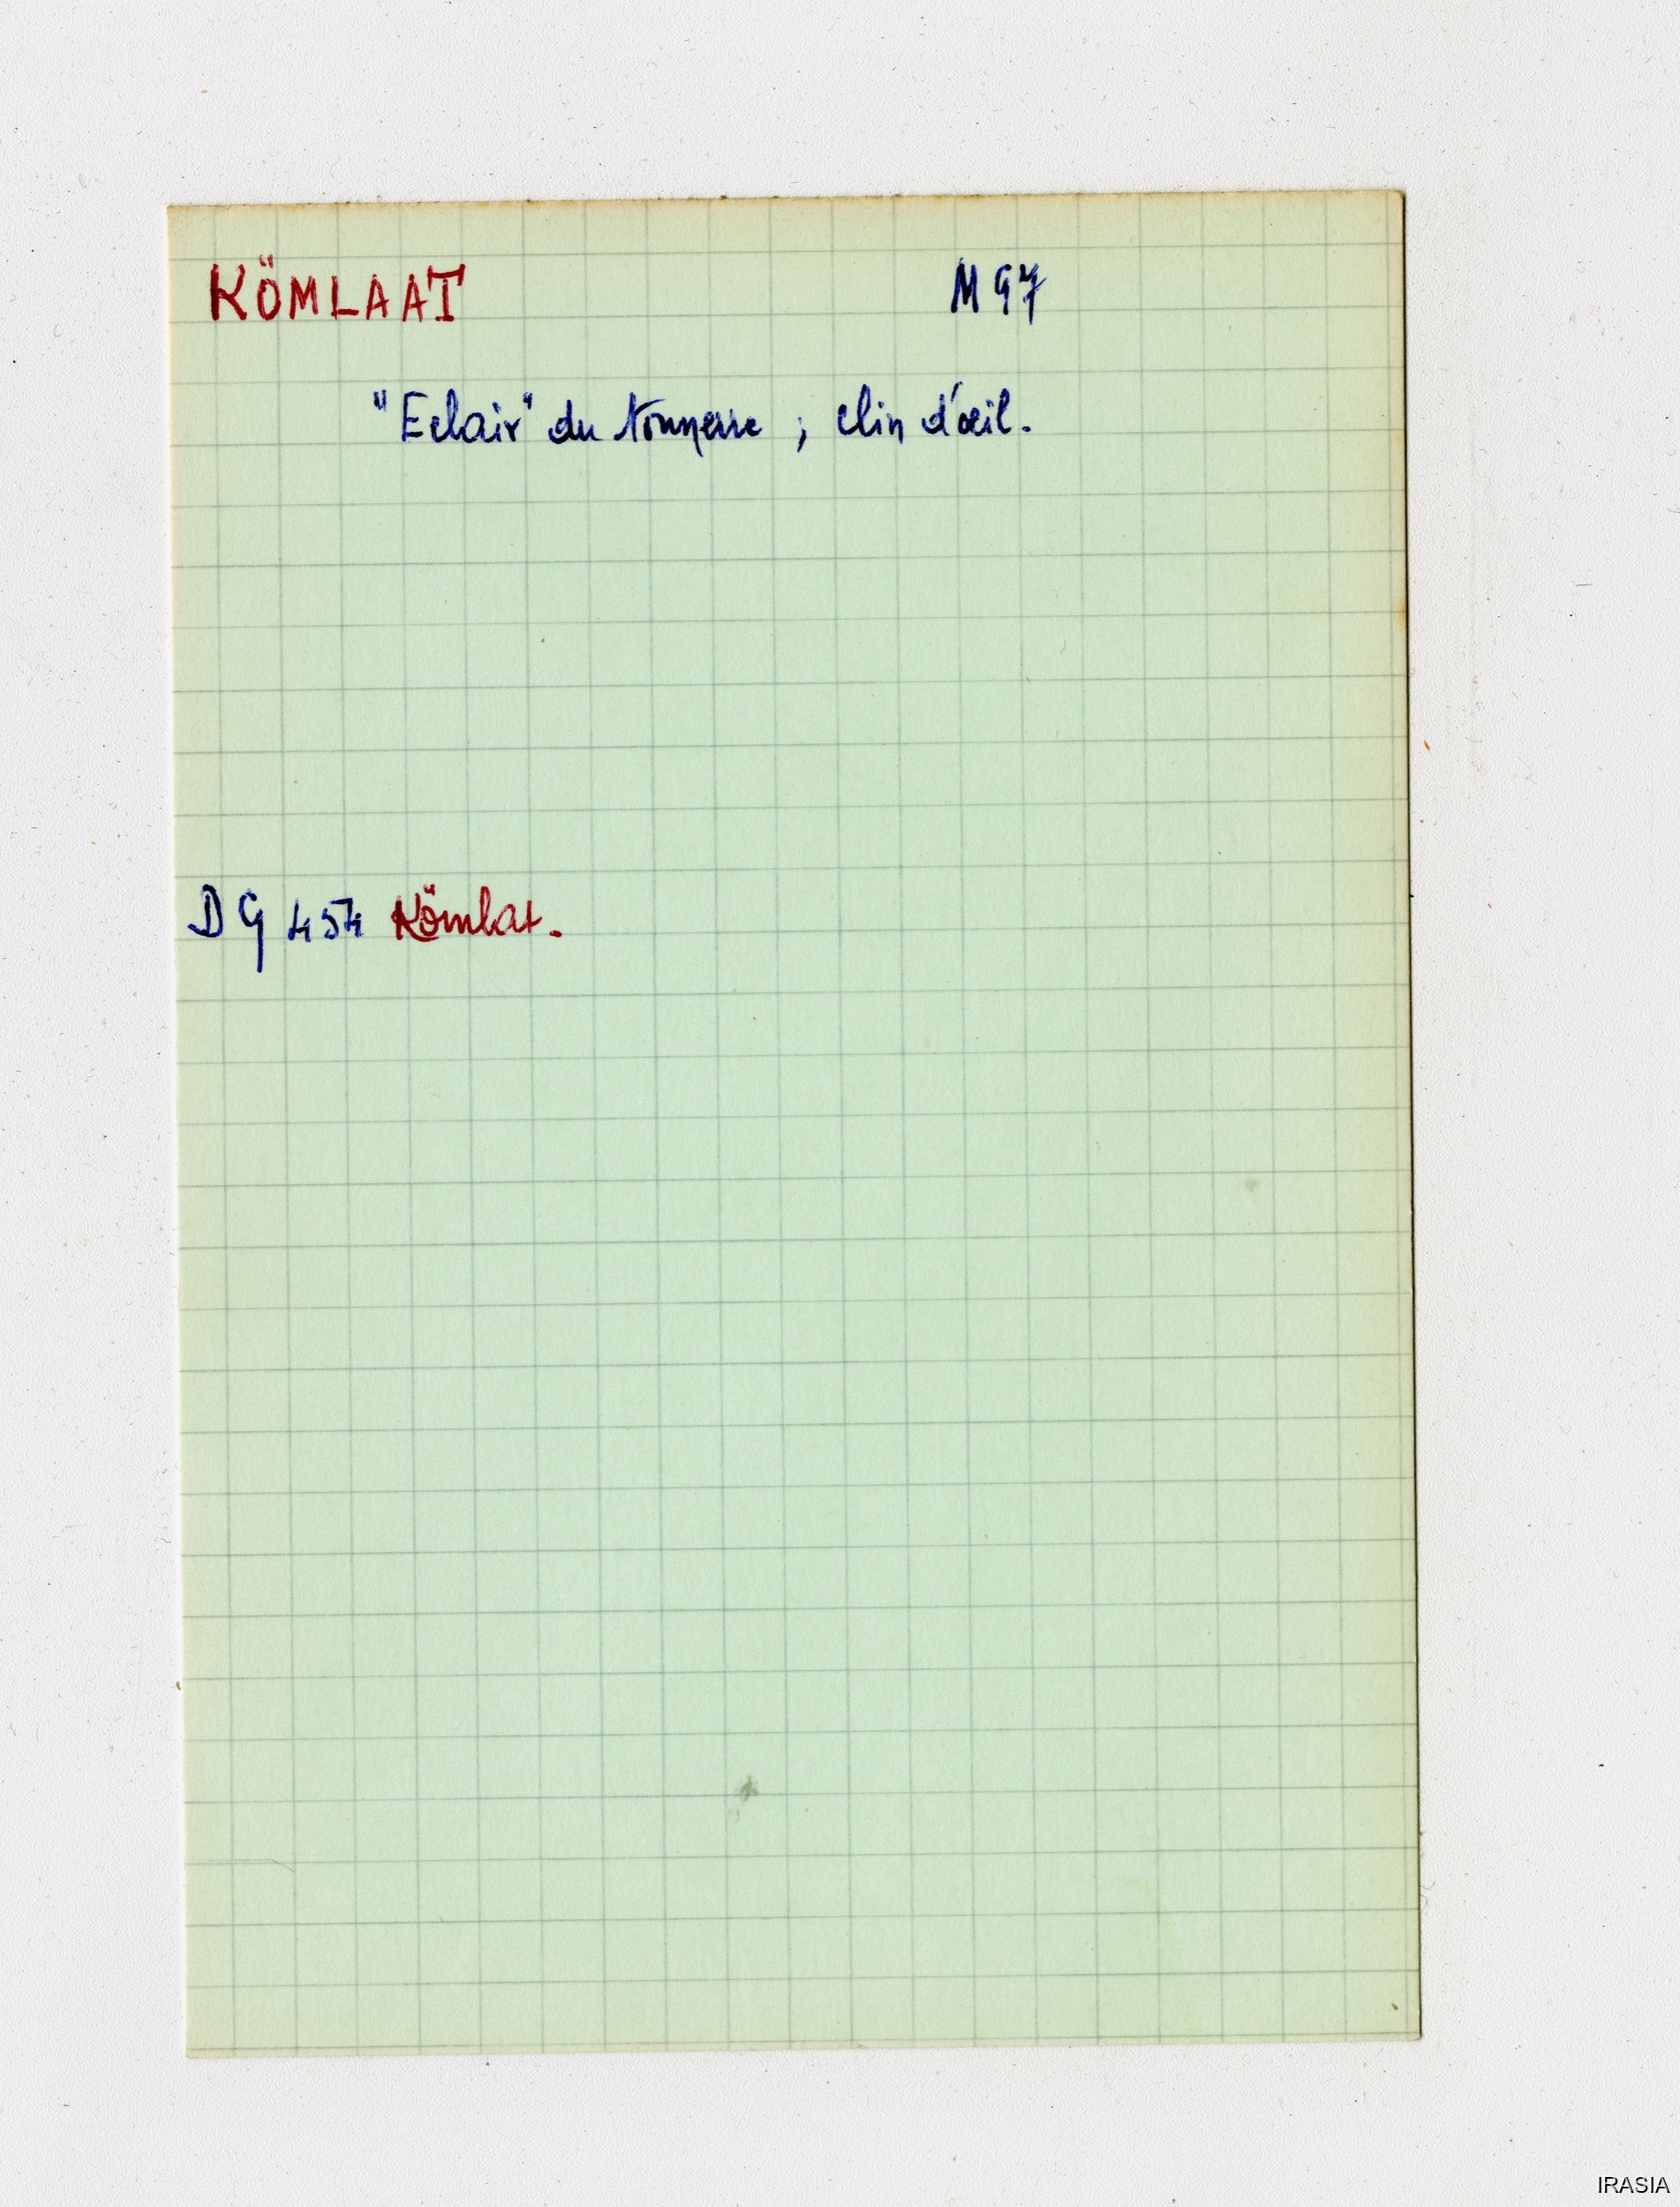 KÖMLAAT M 97
"Eclair" du tonnerre ; clin d'œil.
DG 454 Kömlat.
IRASIA